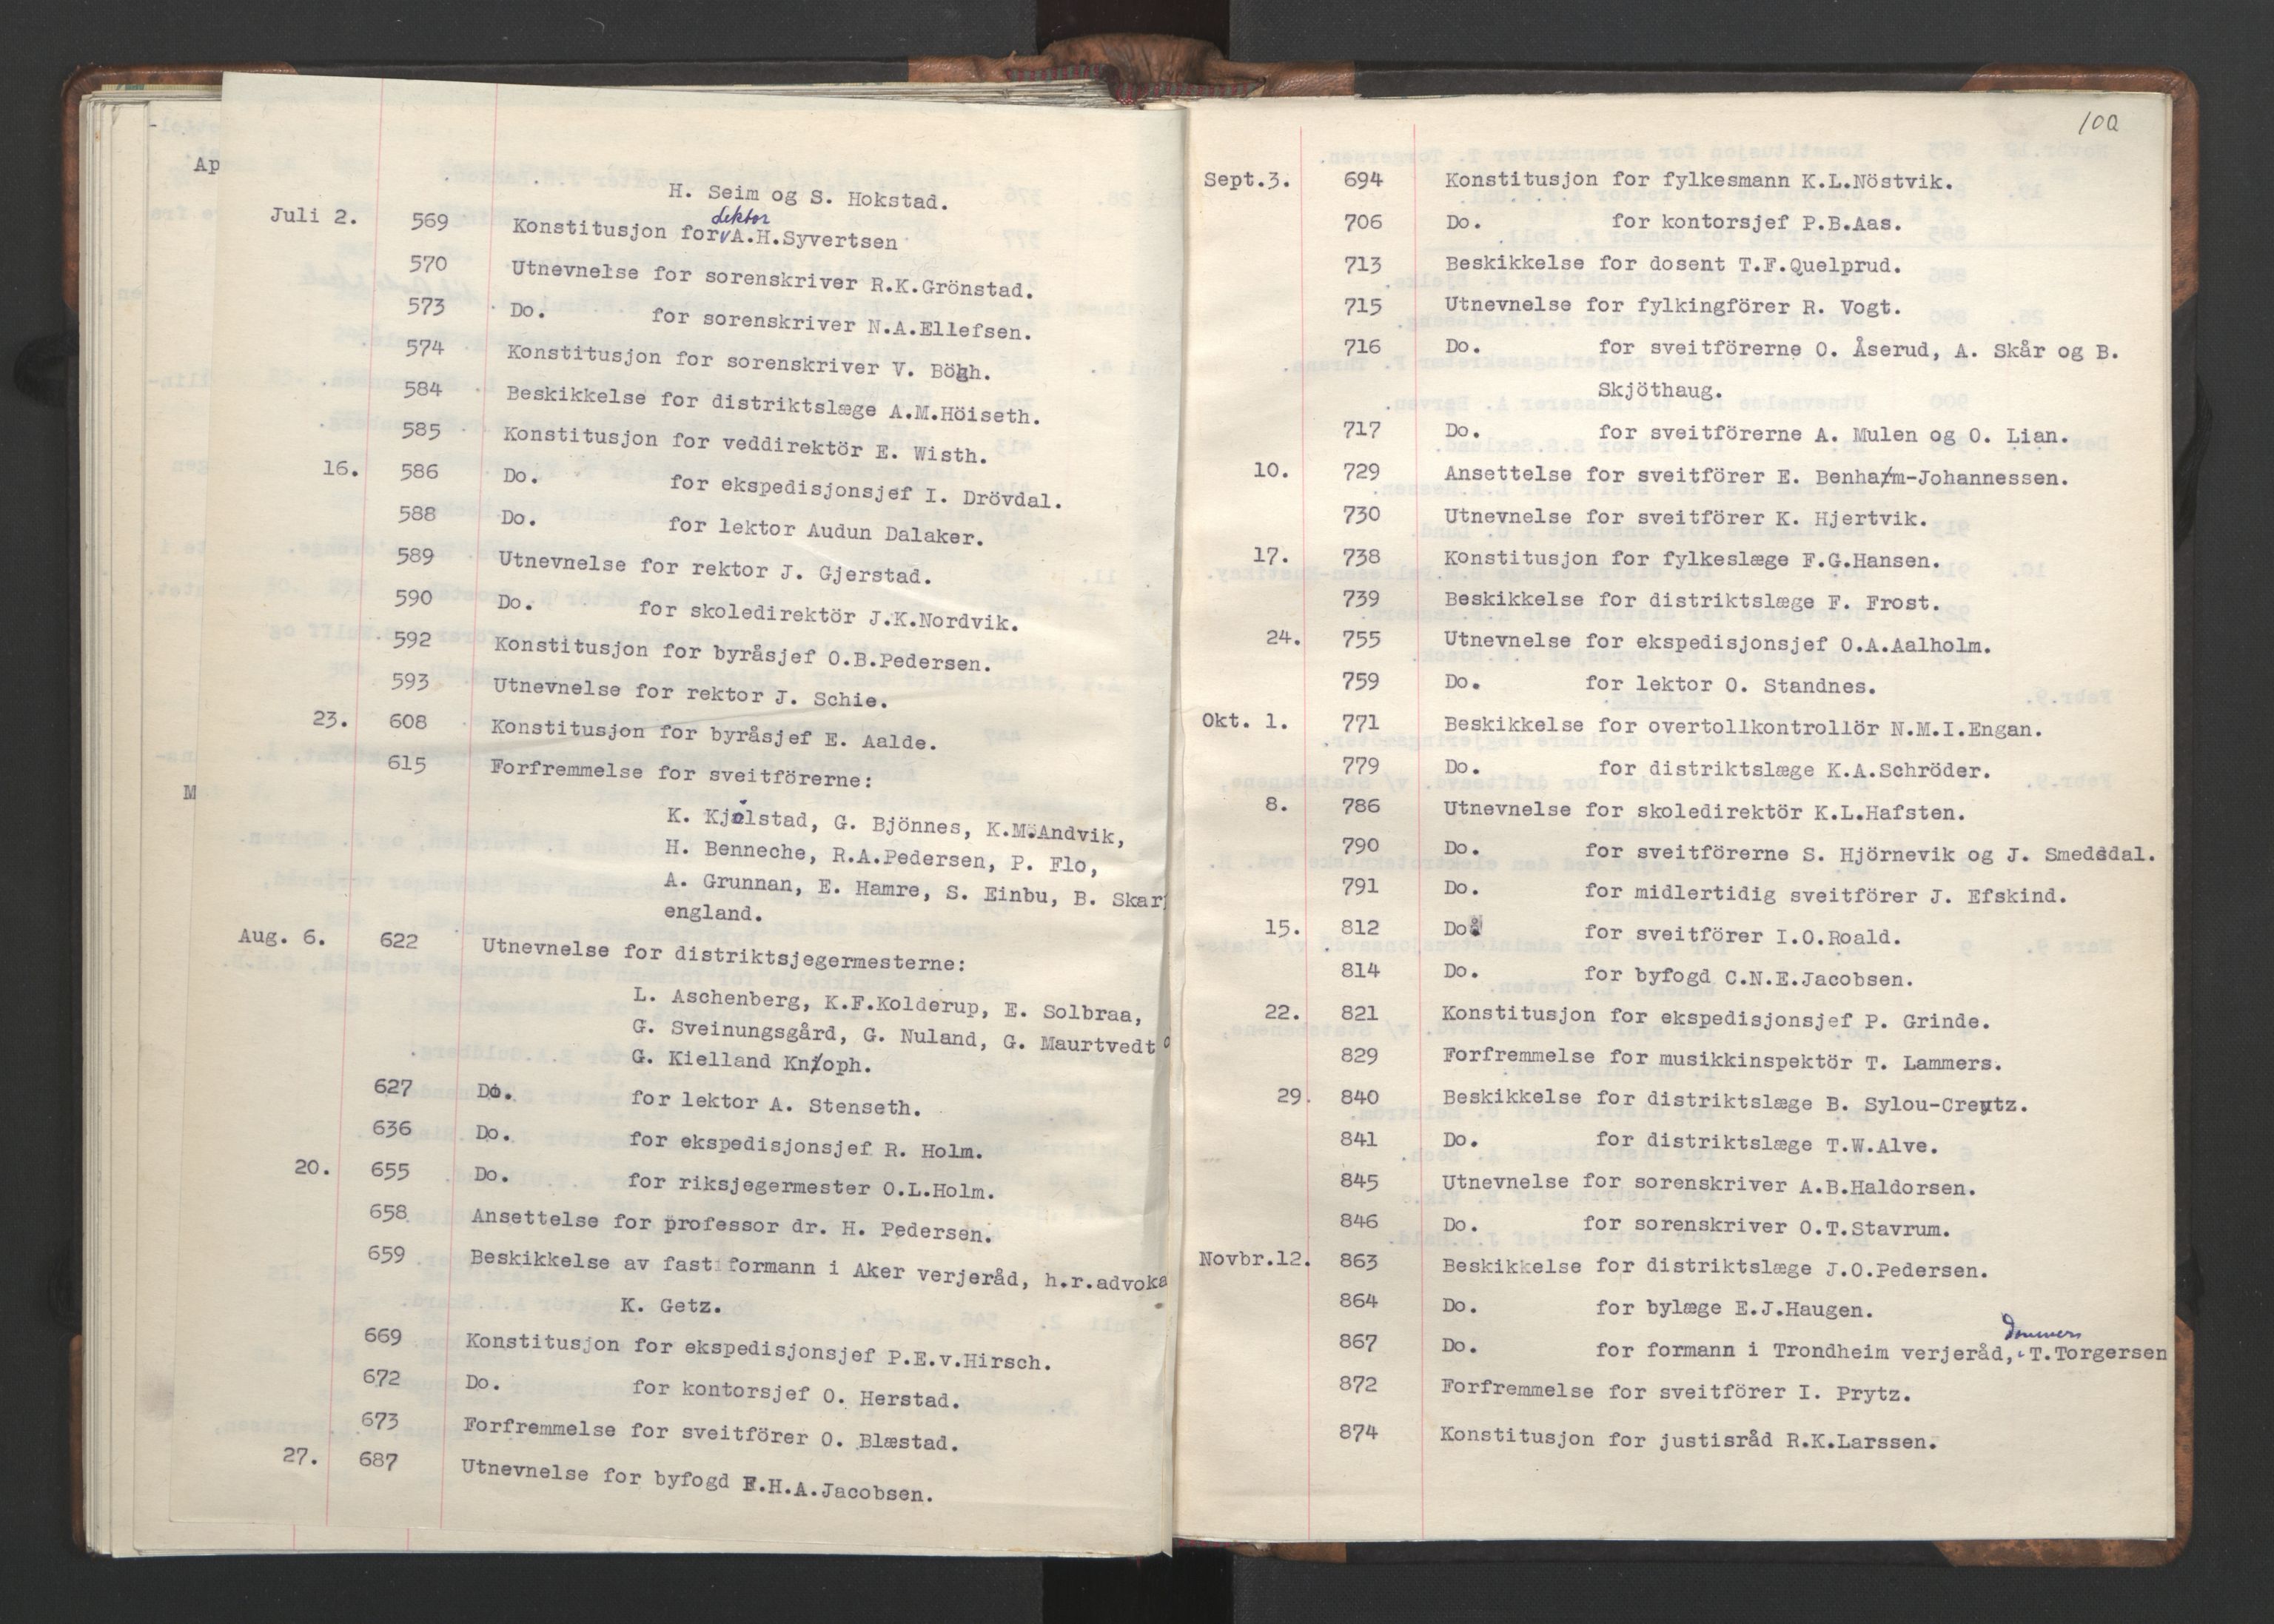 Ap
M
H. Seim og S. Hokstad.
lektor
Juli 2. 569 Konstitusjon for A.H.Syvertsen
570 Utnevnelse for sorenskriver R.K.Grönstad.
573 Do. for sorenskriver N.A.Ellefsen.
574 Konstitusjon for sorenskriver V. Bögh.
584 Beskikkelse for distriktslæge A.M.Höiseth.
585 Konstitusjon for veddirektör E. Wisth.
16. 586 Do. for ekspedisjonsjef I. Drövdal.
588 Do. for lektor Audun Dalaker.
589 Utnevnelse for rektor J. Gjerstad.
590 Do. for skoledirektör J.K.Nordvik.
592 Konstitusjon for byråsjef O.B.Pedersen.
593 Utnevnelse for rektor J. Schie.
23. 608 Konstitusjon for byråsjef E. Aalde.
615 Forfremmelse for sveitförerne:
K. Kjølstad, G. Bjönnes, K.M.Andvik,
H. Benneche, R.A.Pedersen, P. Flo,
A. Grunnan, E. Hamre, S. Einbu, B. Skar
england.
Aug. 6. 622 Utnevnelse for distriktsjegermesterne:
L. Aschenberg, K.F.Kolderup, E. Solbraa,
G. Sveinungsgård, G. Nuland, G. Maurtvedt o
G. Kielland Knoph.
627 Do. for lektor A. Stenseth.
636 Do. for ekspedisjonsjef R. Holm.
20. 655 Do. for riksjegermester O.L.Holm.
658 Ansettelse for professor dr. H. Pedersen.
659 Beskikkelse av fast formann i Aker verjeråd, h.r.advoka
K. Getz.
669 Konstitusjon for ekspedisjonsjef P.E.v.Hirsch.
672 Do. for kontorsjef O. Herstad.
673 Forfremmelse for sveitförer O. Blæstad.
27. 687 Utnevnelse for byfogd F.H.A.Jacobsen.
100
Sept.3. 694 Konstitusjon for fylkesmann K.L.Nöstvik.
706 Do. for kontorsjef P.B.Aas.
713 Beskikkelse for dosent T.F.Quelprud.
715 Utnevnelse for fylkingförer R. Vogt.
716 Do. for sveitförerne O. Åserud, A. Skår og B.
Skjöthaug.
717 Do. for sveitförerne A. Mulen og O. Lian.
10. 729 Ansettelse for sveitförer E. Benham-Johannessen.
730 Utnevnelse for sveitförer K. Hjertvik.
17. 738 Konstitusjon for fylkeslæge F.G.Hansen.
739 Beskikkelse for distriktslæge F. Frost.
24. 755 Utnevnelse for ekspedisjonsjef O.A.Aalholm.
759 Do. for lektor O. Standnes.
Okt. 1. 771 Beskikkelse for overtollkontrollör N.M.I.Engan.
779 Do. for distriktslæge K.A.Schröder.
8. 786 Utnevnelse for skoledirektör K.L.Hafsten.
790 Do. for sveitförerne S. Hjörnevik og J. Smeddal.
791 Do. for midlertidig sveitförer J. Efskind.
15. 812 Do. for sveitförer I.O.Roald.
814 Do. for byfogd C.N.E.Jacobsen.
22. 821 Konstitusjon for ekspedisjonsjef P. Grinde.
829 Forfremmelse for musikkinspektör T. Lammers.
29. 840 Beskikkelse for distriktslæge B. Sylou-Creutz.
841 Do. for distriktslæge T.W.Alve.
845 Utnevnelse for sorenskriver A.B.Haldorsen.
846 Do. for sorenskriver O.T.Stavrum.
Novbr.12. 863 Beskikkelse for distriktslæge J.O.Pedersen.
864 Do. for bylæge E.J.Haugen.
867 Do. for formann i Trondheim verjeråd, T.Torgersen
872 Forfremmelse for sveitförer I. Prytz.
874 Konstitusjon for justisråd R.K.Larssen.